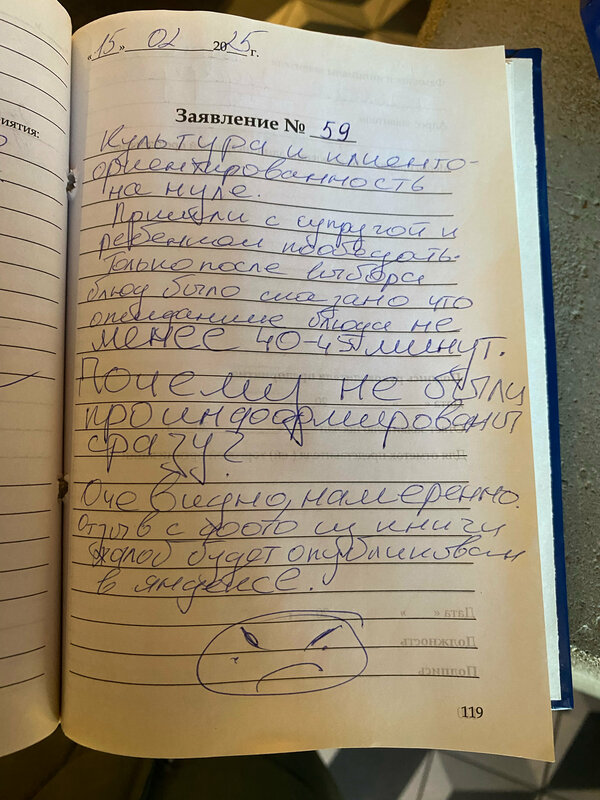 «15» 02 2025 г.
Заявление № 59
Культура и клиенто-
ориентированность
на нуле.
Пришли с супругой и
ребенком пообедать.
Только после выбора
блюд было сказано что
ожидание блюда не
менее 40-45 минут.
Почему не были
проиндоормированы
сразу?
Очевидно, намеренно.
Отзыв с фото из книги
жалоб будет опубликован
в яндексе.
Дата « »
Должность
Подпись
119
иятия: